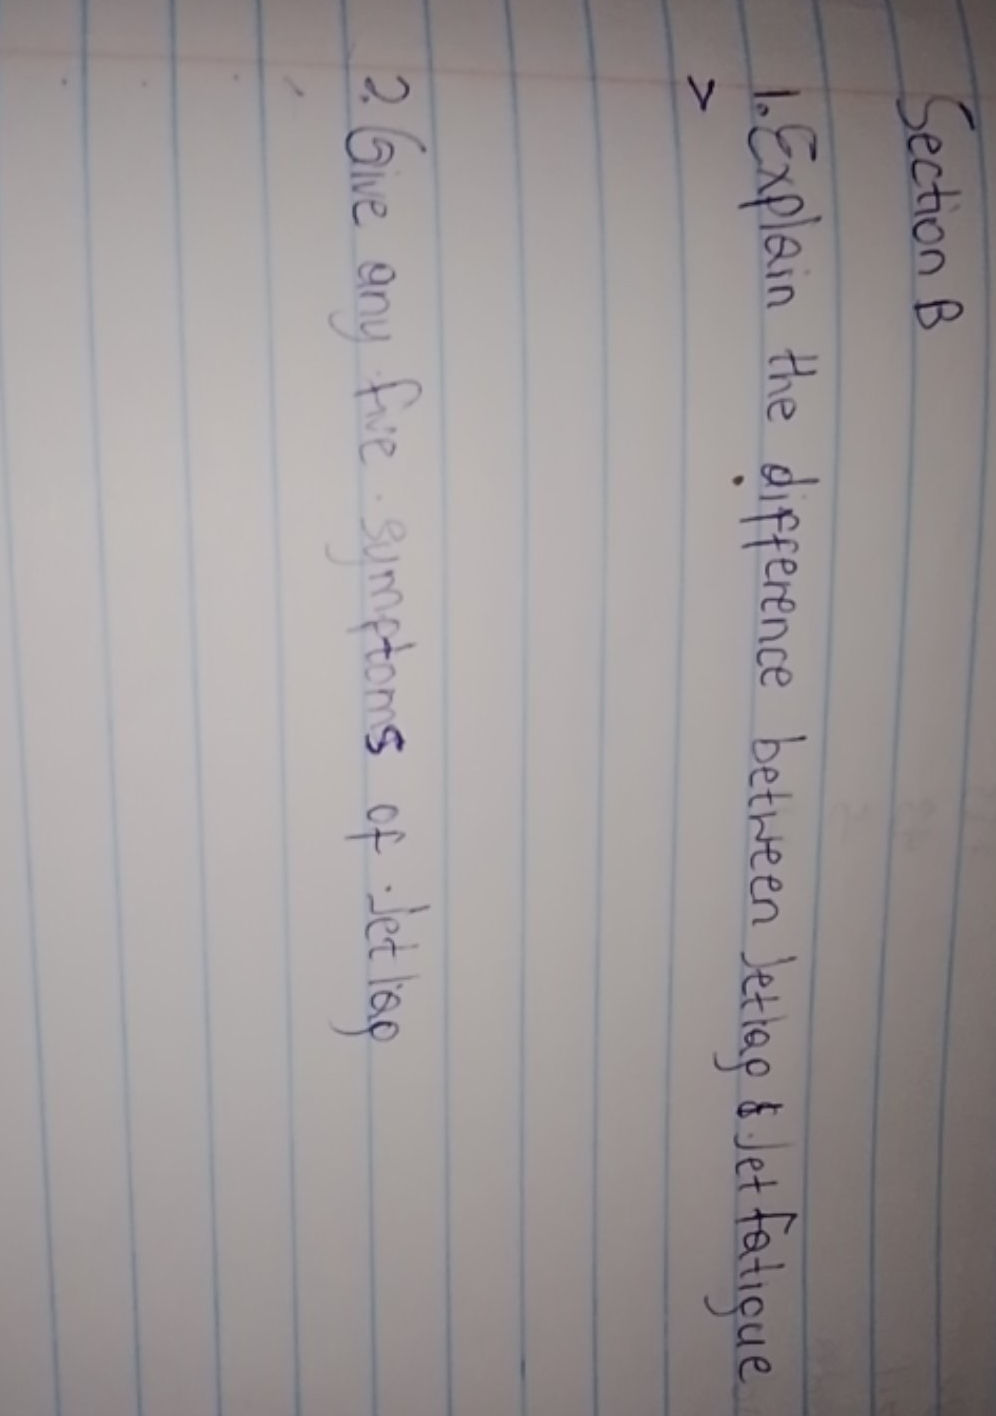 Section B
1. Explain the difference between Jetlag & Jet fatigue
>
2. Give any five symptoms of Jet lag